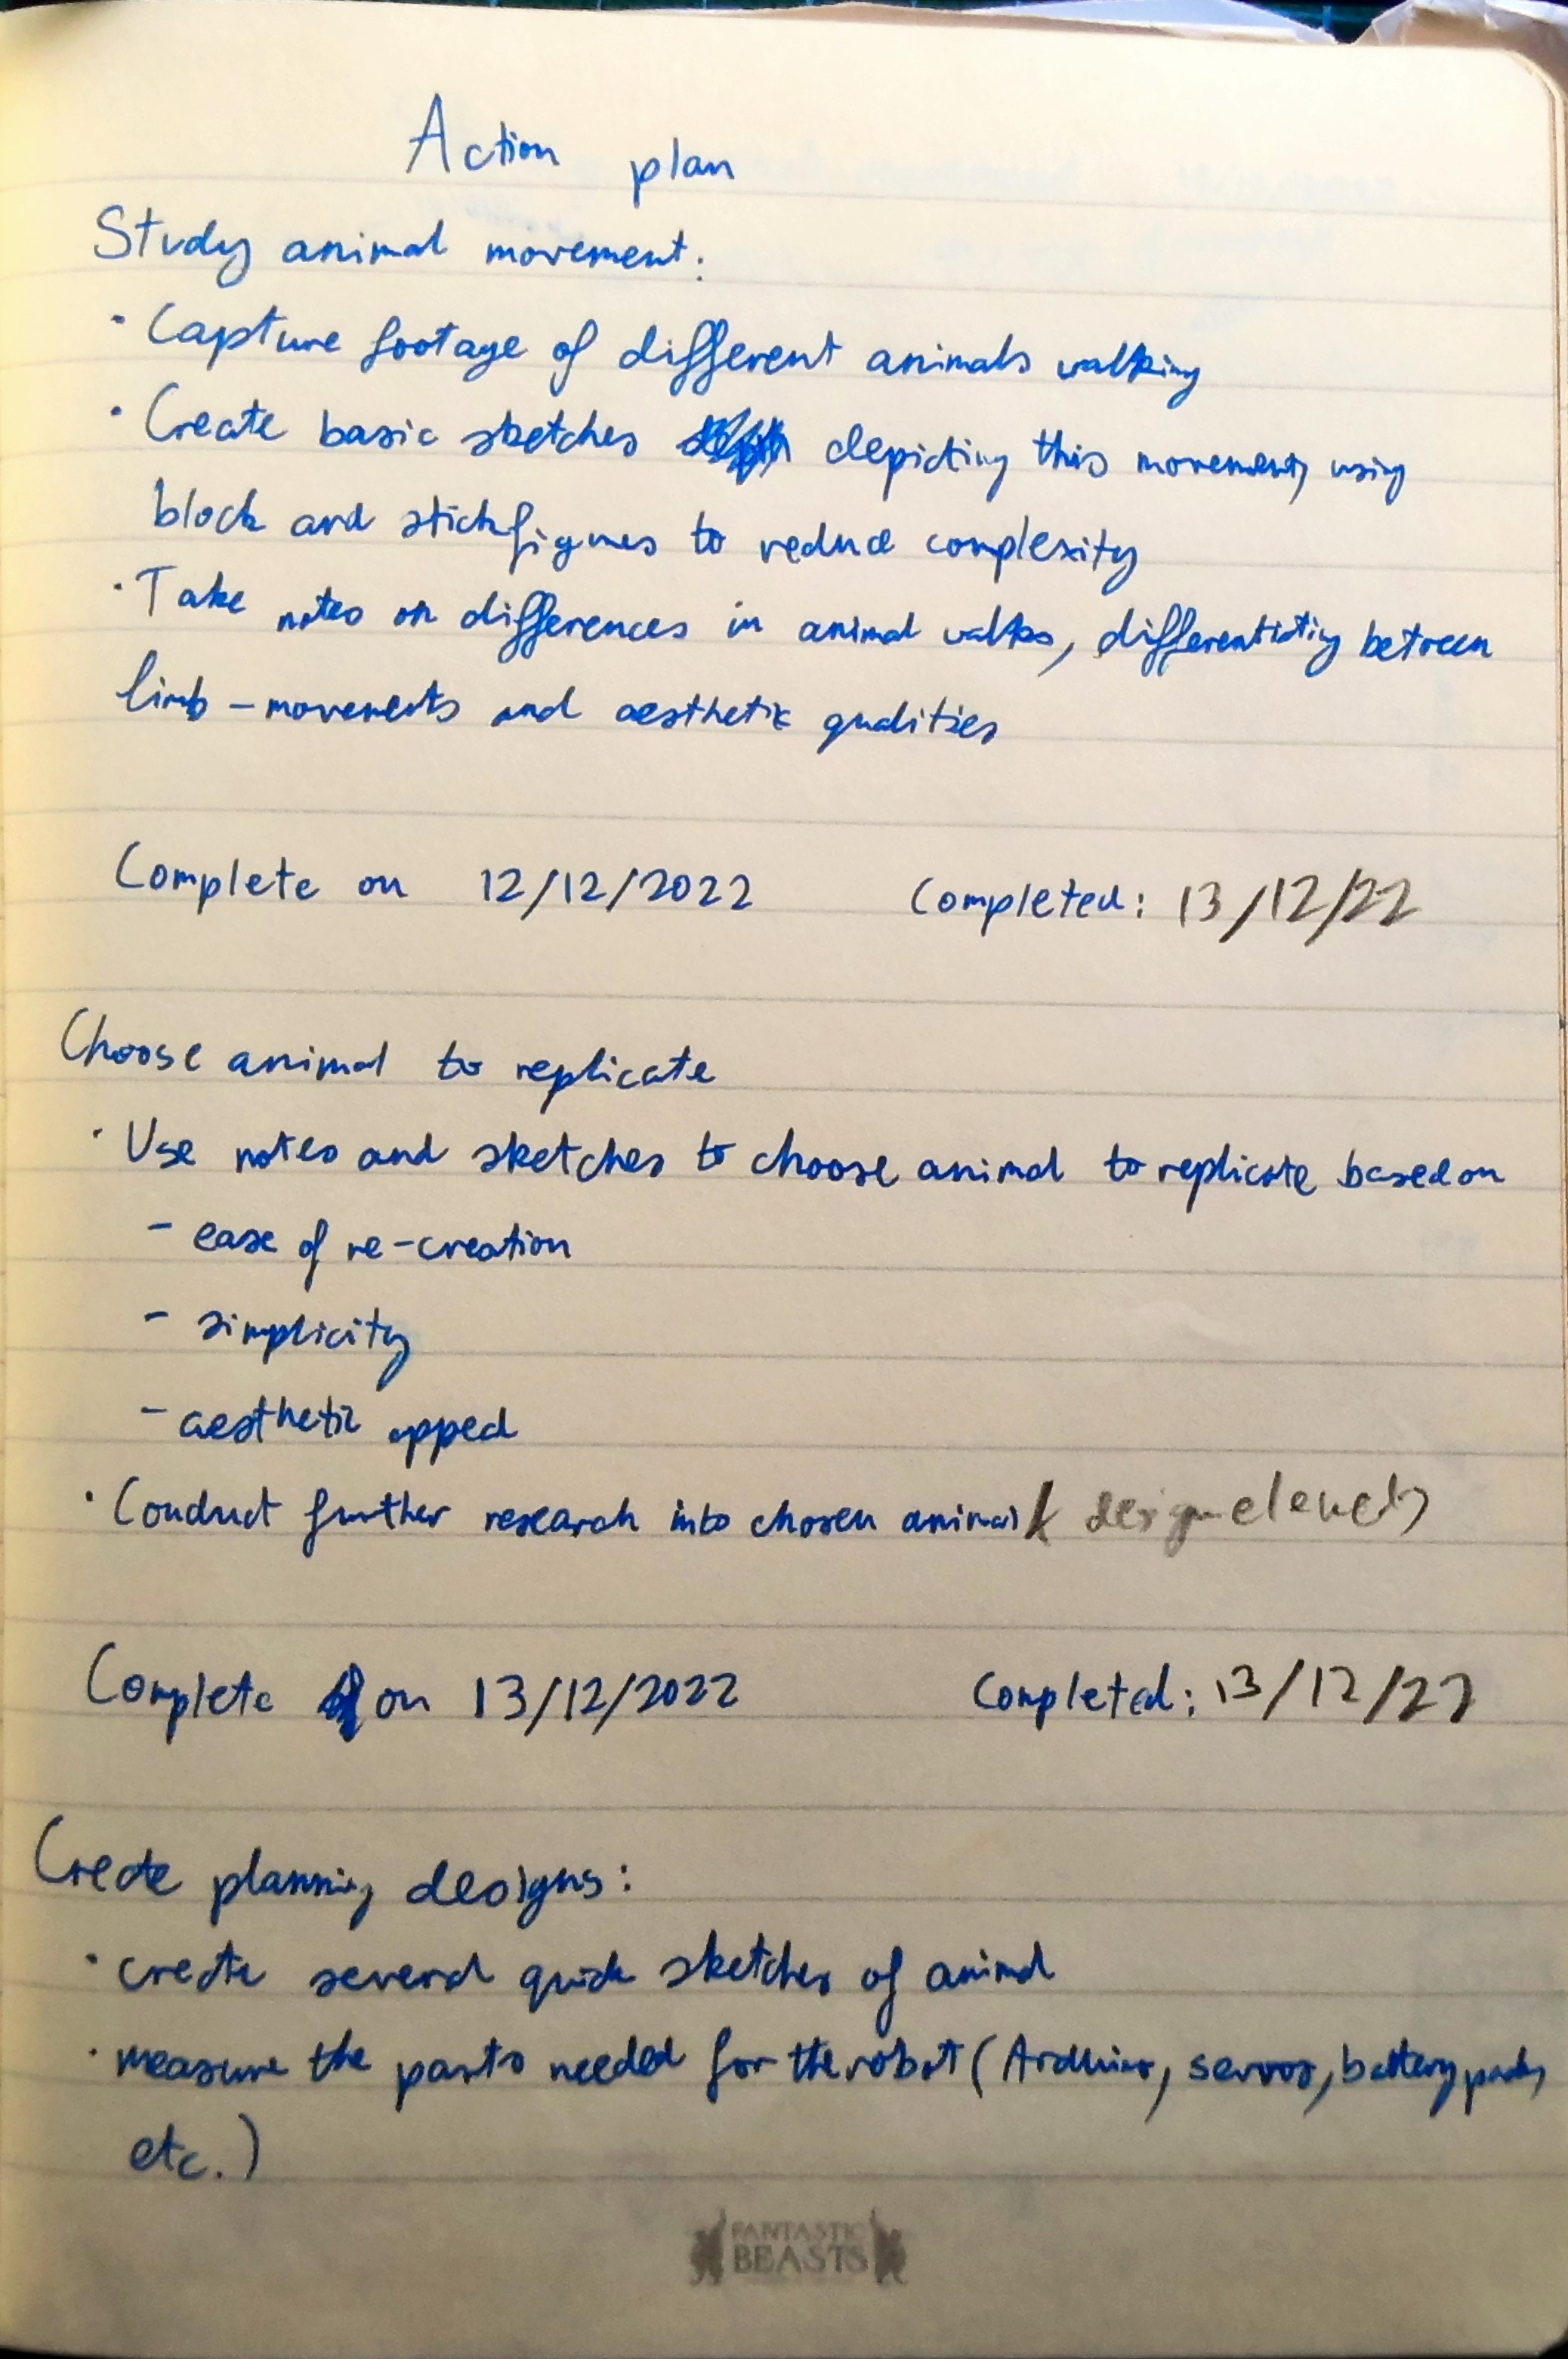 Action plan
Study animal movement:
· Capture footage of different animals walking
· Create basic sketches depicting this movement, using
block and stickfigures to reduce complexity
· Take notes on differences in animal walks, differentiating between
limb-movements and aesthetic qualities
Complete on 12/12/2022 Completed: 13/12/22
Choose animal to replicate
· Use notes and sketches to choose animal to replicate based on
- ease of re-creation
- simplicity
- aesthetic appeal
· Conduct further research into chosen animal & design elements
Complete on 13/12/2022 Completed: 13/12/22
Create planning designs:
· create several quick sketches of animal
· measure the parts needed for the robot (Arduino, servos, battery pack,
etc.)
FANTASTIC
BEASTS